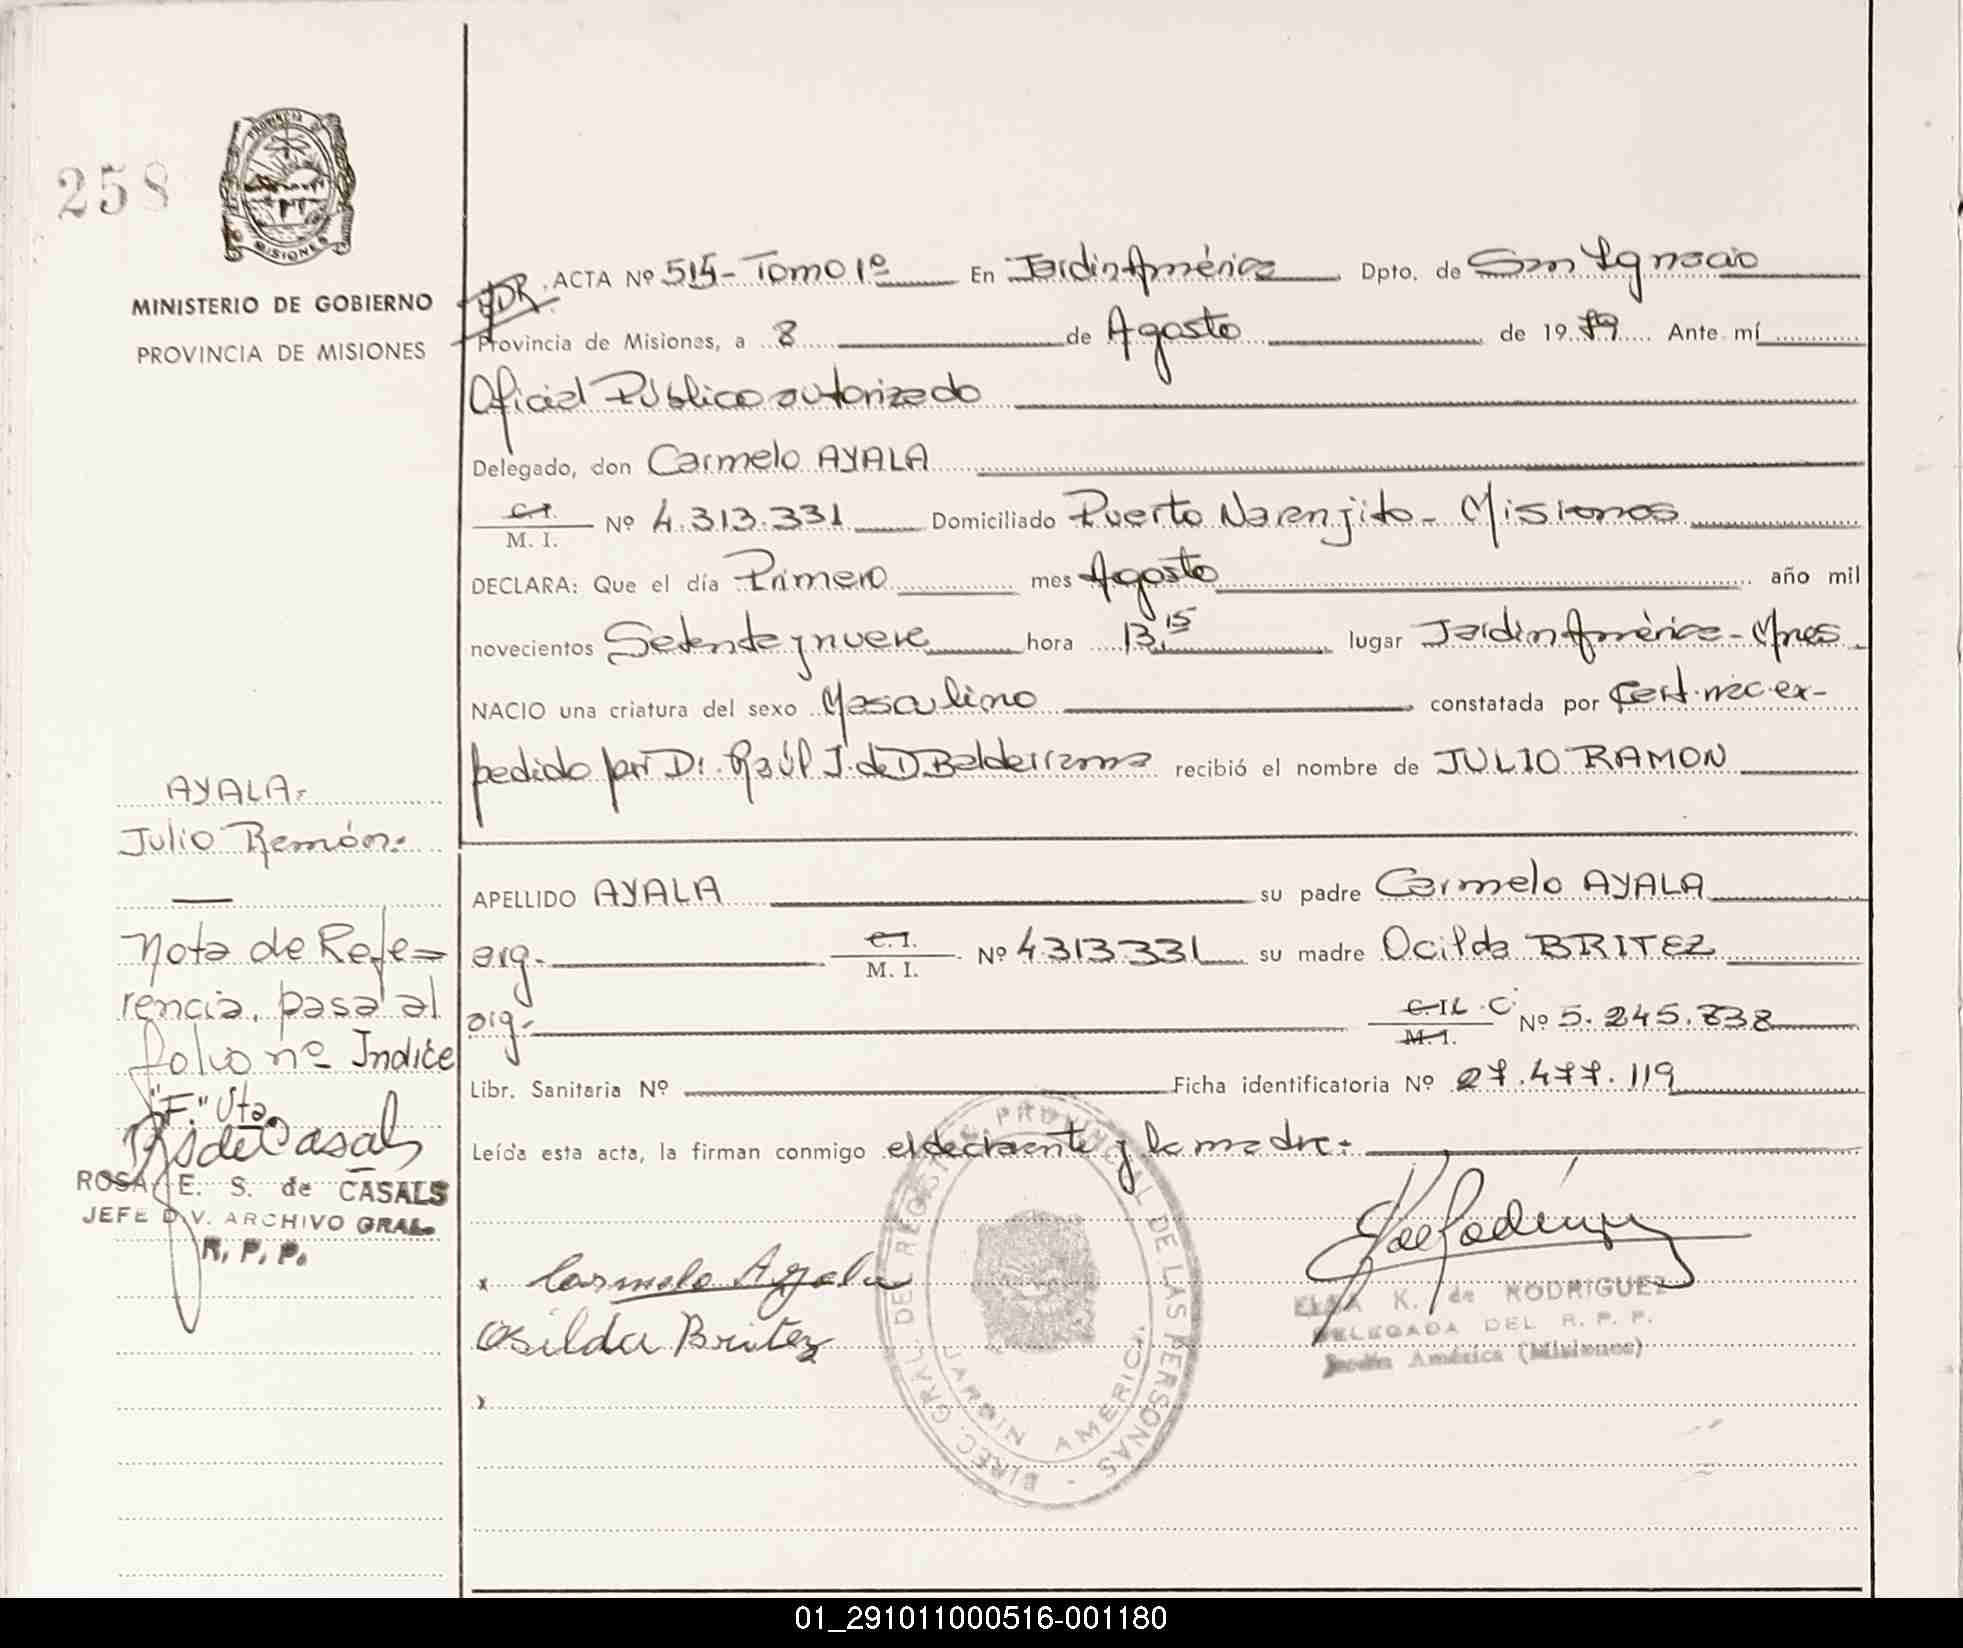 258
PROVINCIA DE
MISIONES
MINISTERIO DE GOBIERNO
PROVINCIA DE MISIONES
ACTA Nº 515- Tomo 1º En Jardín América Dpto. de San Ignacio
Provincia de Misiones, a 8 de Agosto de 1979 Ante mí
Oficial Público autorizado
Delegado, don Carmelo AYALA
C.I.
M. I. Nº 4.313.331 Domiciliado Puerto Naranjito - Misiones
DECLARA: Que el día Primero mes Agosto año mil
novecientos Setenta y nueve hora 13,15 lugar Jardín América - Mnes
NACIO una criatura del sexo Masculino constatada por Cert. nac. ex-
pedido por Dr. Raúl J. de D. Balderrama recibió el nombre de JULIO RAMON
AYALA:
Julio Ramón:
APELLIDO AYALA su padre Carmelo AYALA
arg. C.I.
M. I. Nº 4313331 su madre Ocilda BRITEZ
arg. C.I L.C
M.I. Nº 5.245.838
Libr. Sanitaria Nº Ficha identificatoria Nº 27.477.119
Leída esta acta, la firman conmigo el declarante y la madre:
Nota de Refe=
rencia, pasa al
folio nº Indice
"F." Vta.
RSdeCasals
ROSA E. S. de CASALS
JEFE DIV. ARCHIVO GRAL.
R. P. P.
x Carmelo Ayala
Osilda Britez
x
DIREC. GRAL. DEL REGISTRO PROVINCIAL DE LAS PERSONAS -
JARDIN AMERICA
ELSA K. de RODRIGUEZ
DELEGADA DEL R. P. P.
Jardín América (Misiones)
01_291011000516-001180